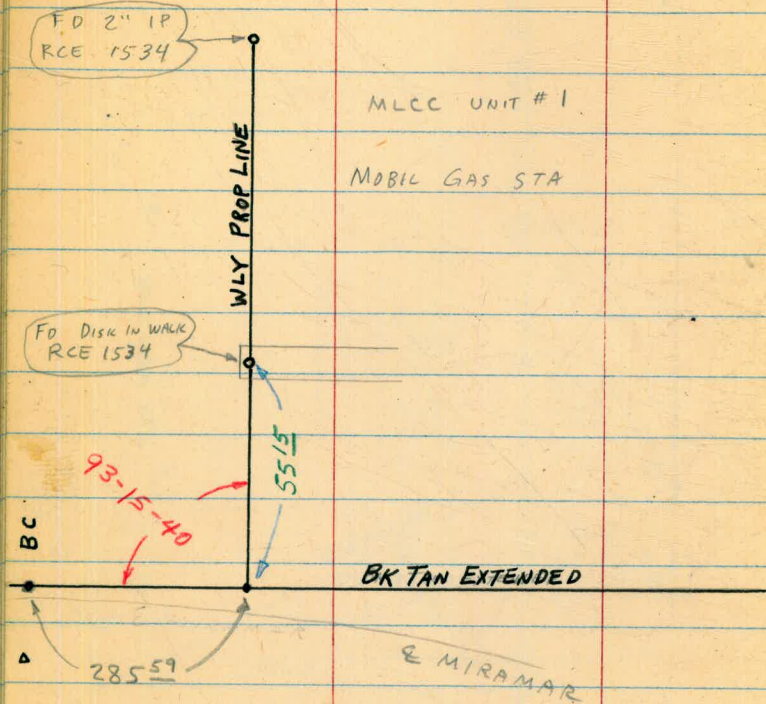 FD 2" IP
RCE 1534
MLCC UNIT #1
MOBIL GAS STA
WLY PROP LINE
FD DISK IN WALK
RCE 1534
5515
93-15-40
BC
BK TAN EXTENDED
285 59
℄ MIRAMAR